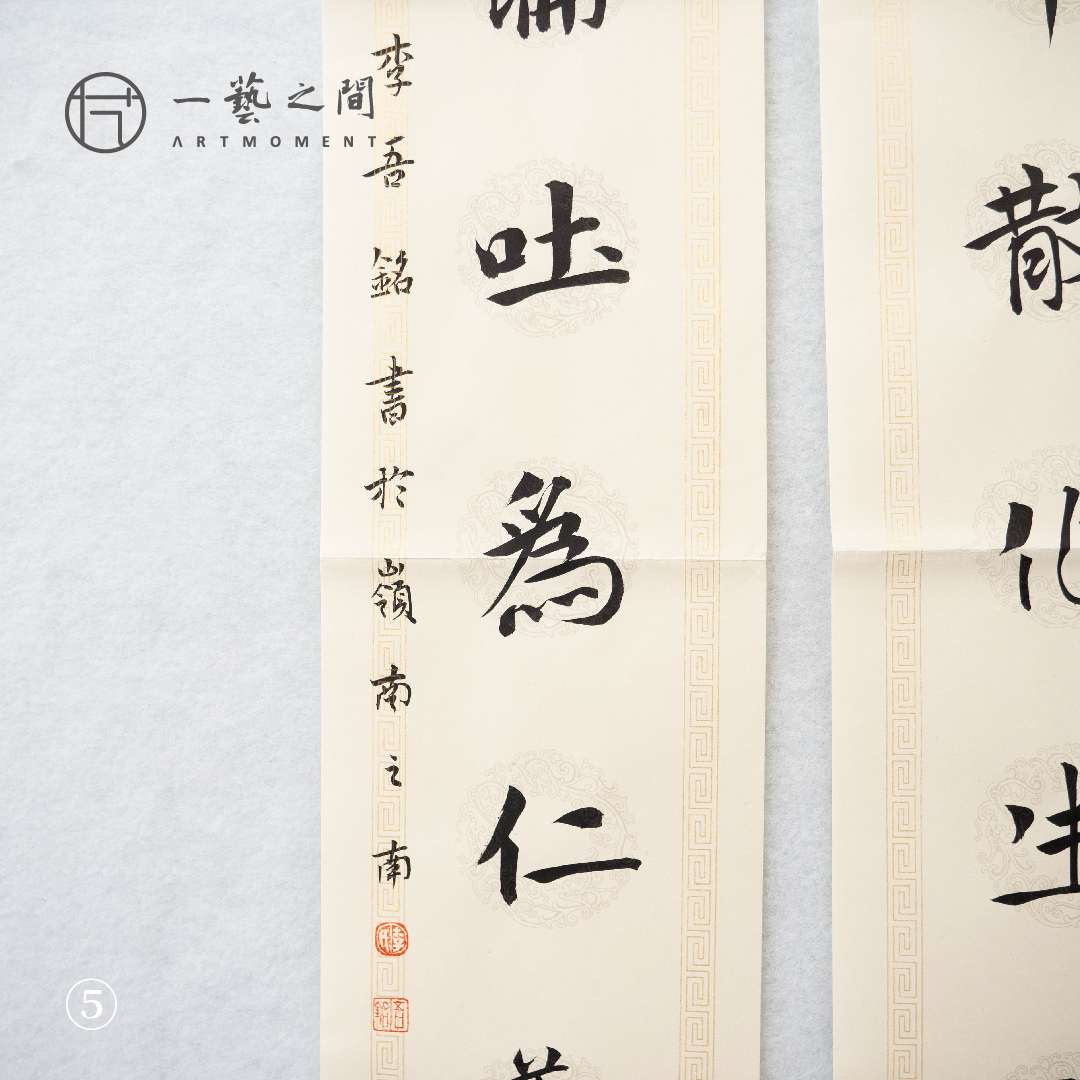 一藝之間
ARTMOMENT
散化生
吐為仁
李吾銘書於嶺南之南
吾銘
5